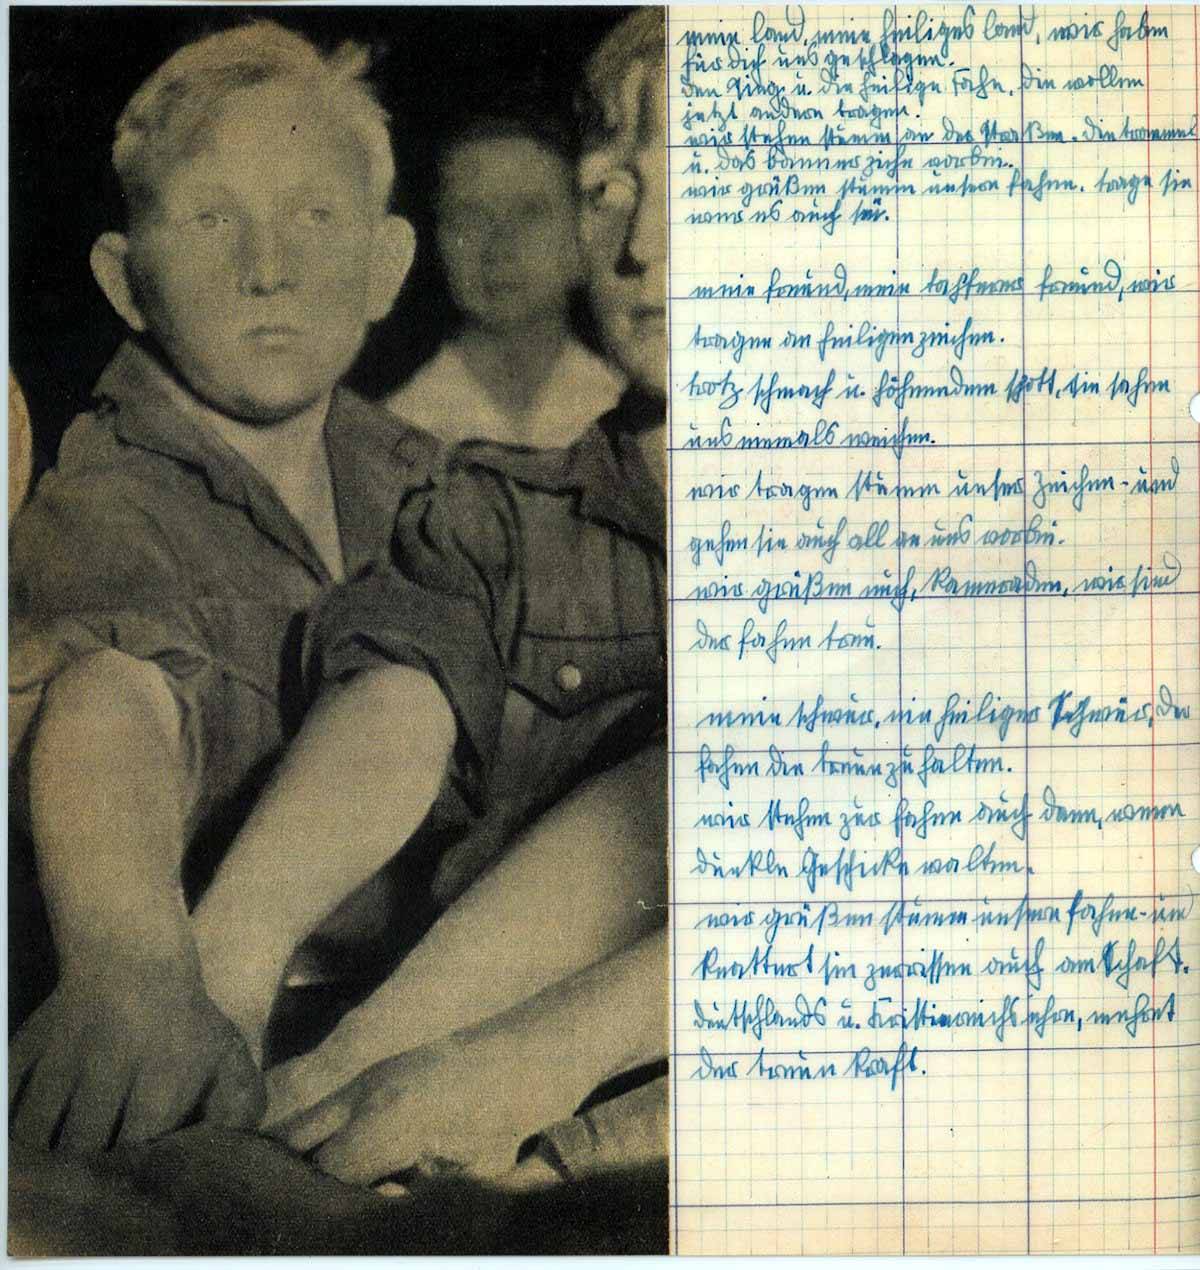 mein land, mein heiliges land, wir haben
für dich uns geschlagen.
den Sieg u. die heilige Fahn, die wollen
jetzt andere tragen.
wir stehen stumm an der Straßen. die trommel
u. das banner ziehn vorbei..
wir grüßen stumm unsere fahne. trage sie
wer es auch sei.
mein freund, mein tapferer freund, wir
tragen an heiligen zeichen.
trotz schmach u. höhnendem spott, sie sahen
uns niemals weichen.
wir tragen stumm unser Zeichen - und
gehen sie auch all an uns vorbei.
wir grüßen euch, Kameraden, wir sind
der fahne treu.
mein schwur, ein heiliger Schwur, der
fahne die treue zu halten.
wir stehen zur fahne auch dann, wenn
dunkle Geschicke walten.
wir grüßen stumm unsere fahne - und
knattert sie zerrissen auch am Schaft.
deutschlands u. ehre, mehret
der treuen kraft.